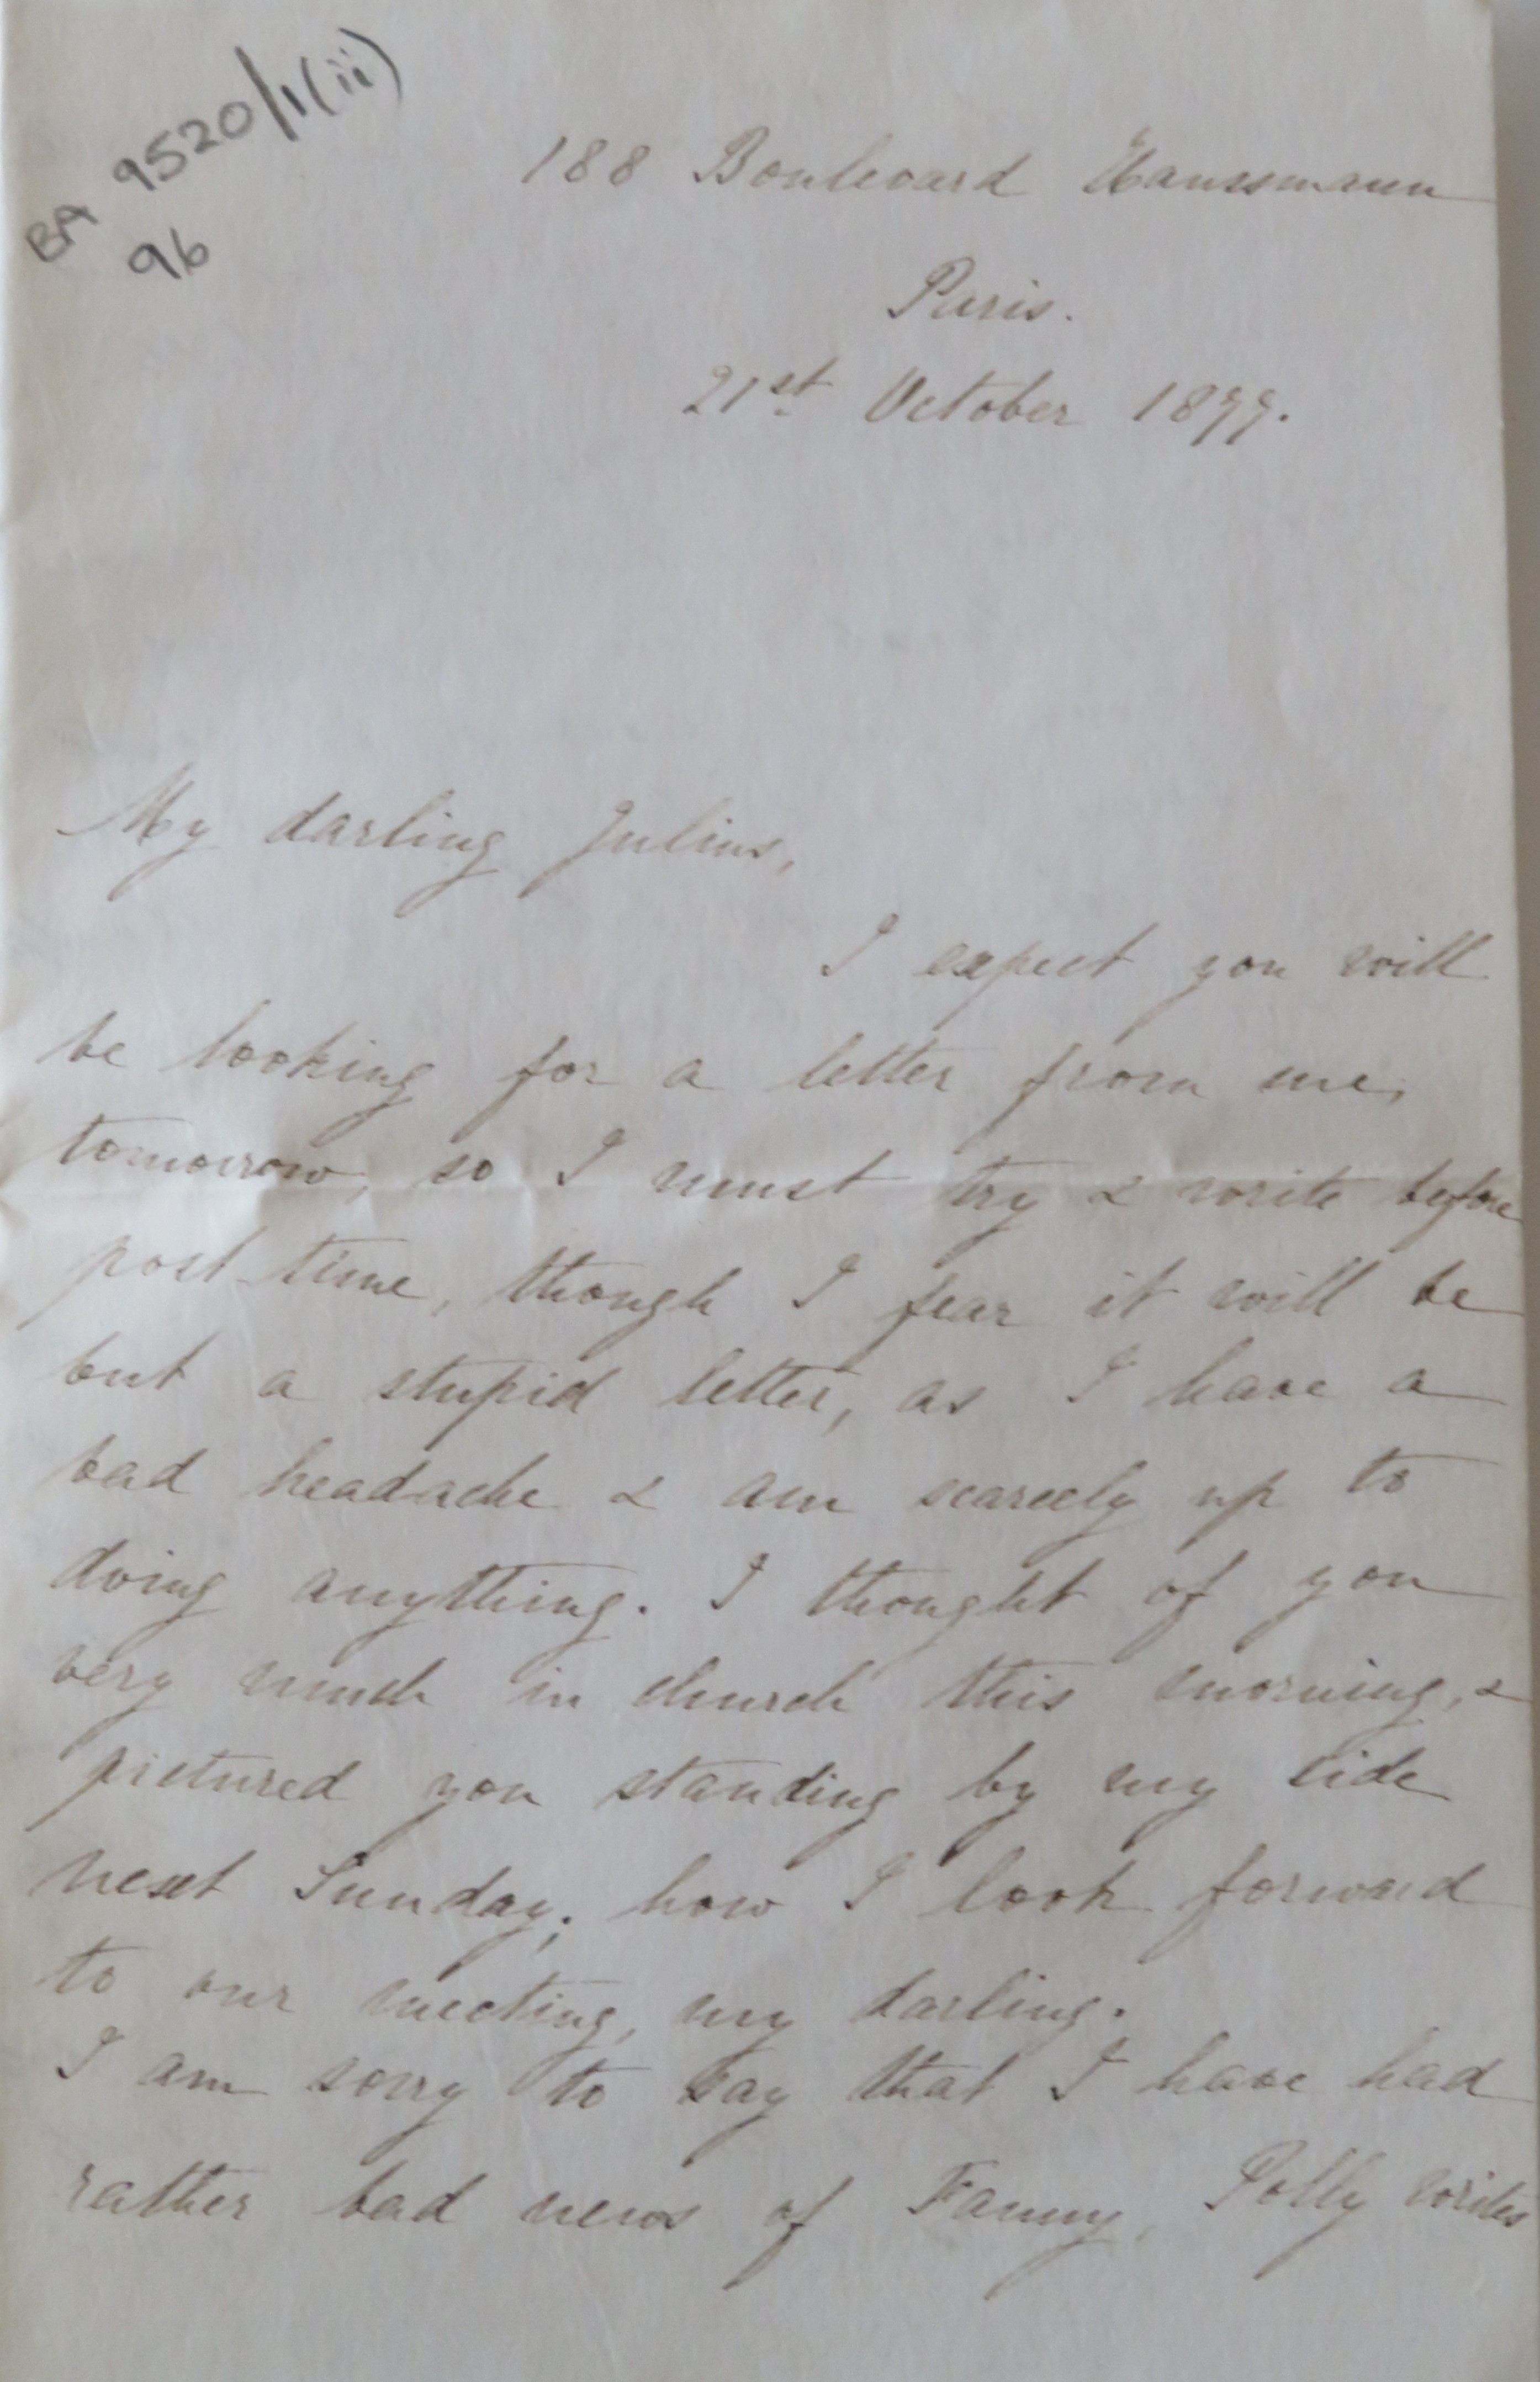 BA 9520/1(iii)
96
188 Boulevard Haussmann
Paris.
21st October 1877.
My darling Julius,
I expect you will
be looking for a letter from me,
tomorrow, so I must try & write before
post time, though I fear it will be
but a stupid letter, as I have a
bad headache & am scarcely up to
doing anything. I thought of you
very much in church this morning, &
pictured you standing by my side
next Sunday; how I look forward
to our meeting, my darling.
I am sorry to say that I have had
rather bad news of Fanny, Polly writes